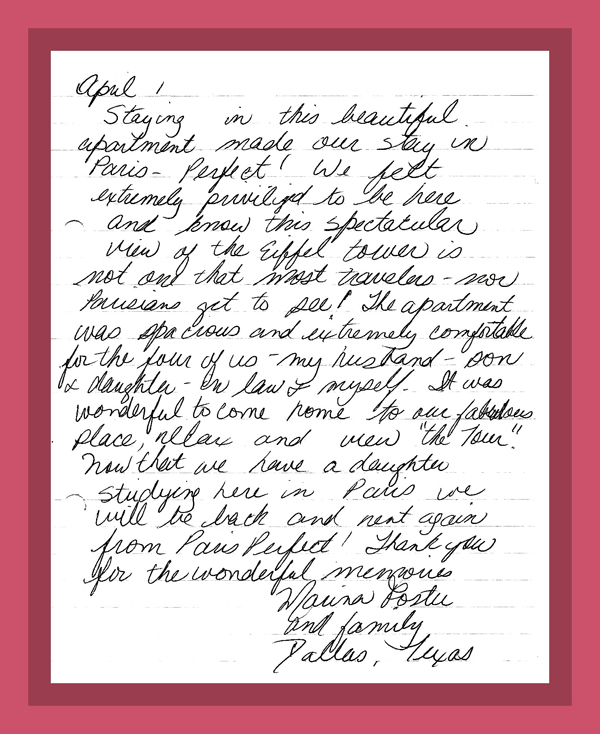 April 1
Staying in this beautiful
apartment made our stay in
Paris - Perfect! We felt
extremely priviliged to be here
and know this spectacular
view of the Eiffel tower is
not one that most travelers - nor
Parisians get to see! The apartment
was spacious and extremely comfortable
for the four of us - my husband - son
& daughter - in law & myself. It was
wonderful to come home to our fabulous
place, relax and view "the Tour".
Now that we have a daughter
studying here in Paris we
will be back and rent again
from Paris Perfect! Thank you
for the wonderful memories
Marina
and family
Dallas, Texas